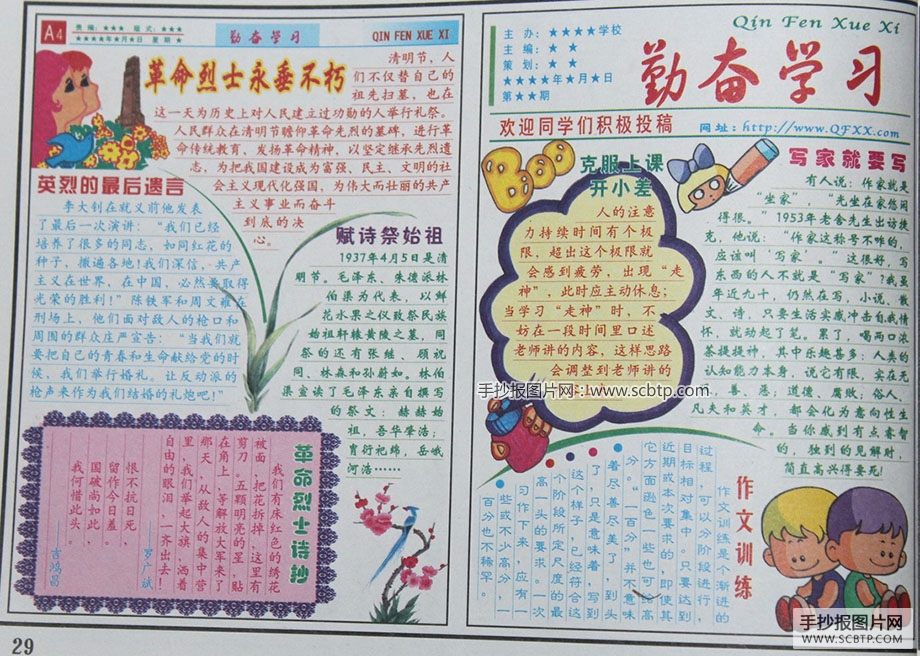 A4
责编：★★★ 版式：★★★
★★★★年★月★日 星期 ★
勤奋学习
QIN FEN XUE XI
革命烈士永垂不朽
清明节，人
们不仅替自己的
祖先扫墓，也在
这一天为历史上对人民建立过功勋的人举行礼祭。
人民群众在清明节瞻仰革命先烈的墓碑，进行革
命传统教育，发扬革命精神，以坚定继承先烈遗
志，为把我国建设成为富强、民主、文明的社
会主义现代化强国，为伟大而壮丽的共产
主义事业而奋斗
到底的决
心。
英烈的最后遗言
李大钊在就义前他发表
了最后一次演讲：“我们已经
培养了很多的同志，如同红花的
种子，撒遍各地！我们深信，共产
主义在世界，在中国，必然要取得
光荣的胜利！”陈铁军和周文雍在
刑场上，他们面对敌人的枪口和
周围的群众庄严宣告：“当我们就
要把自己的青春和生命献给党的时
候，我们举行婚礼。让反动派的
枪声来作为我们结婚的礼炮吧！”
赋诗祭始祖
1937年4月5日是清
明节。毛泽东、朱德派林
伯渠为代表，以鲜
花水果之仪致祭民族
始祖轩辕黄陵之墓，同
祭的还有张继、顾祝
同、林森和孙蔚如。林伯
渠宣读了毛泽东亲自撰写
的祭文：赫赫始
祖，吾华肇造；
胄衍祀绵，岳峨
河浩……
革命烈士诗抄
我们有床红色的绣花
被面，把花拆掉，这里有
剪刀。五颗明亮的星，贴
在角上，等解放大军来了
那天，从敌人的集中营
里，我们举起大旗，洒着
自由的眼泪，一齐出去！
——罗广斌
恨不抗日死，
留作今日羞。
国破尚如此，
我何惜此头。
——吉鸿昌
29
Qin Fen Xue Xi
主办：★★★★学校
主编：★ ★
策划：★ ★
★★★★年★月★日
第★★期
勤奋学习
欢迎同学们积极投稿
网址：http://www.QFXX.com
Boo
克服上课
开小差
人的注意
力持续时间有个极
限，超出这个极限就
会感到疲劳，出现“走
神”，此时应主动休息；
当学习“走神”时，不
妨在一段时间里口述
老师讲的内容，这样思路
会调整到老师讲的
写家就要写
有人说：作家就是
“坐家”，“先坐在家悠闲
得很。”1953年老舍先生出访捷
克，他说：“作家这称号不咋的，
应该叫‘写家’。”这很好，写
东西的人不就是“写家”？我虽
年近九十，仍然在写，小说、散
文、诗，只要生活实感冲击自我情
怀，就动起了笔。累了，喝两口浓
茶提提神，其中乐趣甚多：人类的
认知能力本身，说它有限，实在无
、善、恶、道德、腐败；俗人、
凡夫和英才，都会化为意向性生
命。当你感到有点睿智
的，独到的见解时，
简直高兴得要死！
手抄报图片网：www.scbtp.com
作文训练
作文训练是个渐进的
过程，可以分阶段进行，
目标相对集中。只要达到
近期或本次要求的，即使其
它方面逊色一些也可给高
分。“一百分”并不意味
着尽善尽美了，到头
了，只是意味着，写到
这个样子，已经符合这
个阶段所定尺度的最
高一头的要求。一次
习作下来，应有一
些或不少高分，一
百分也不稀罕。
手抄报图片网
WWW.SCBTP.COM